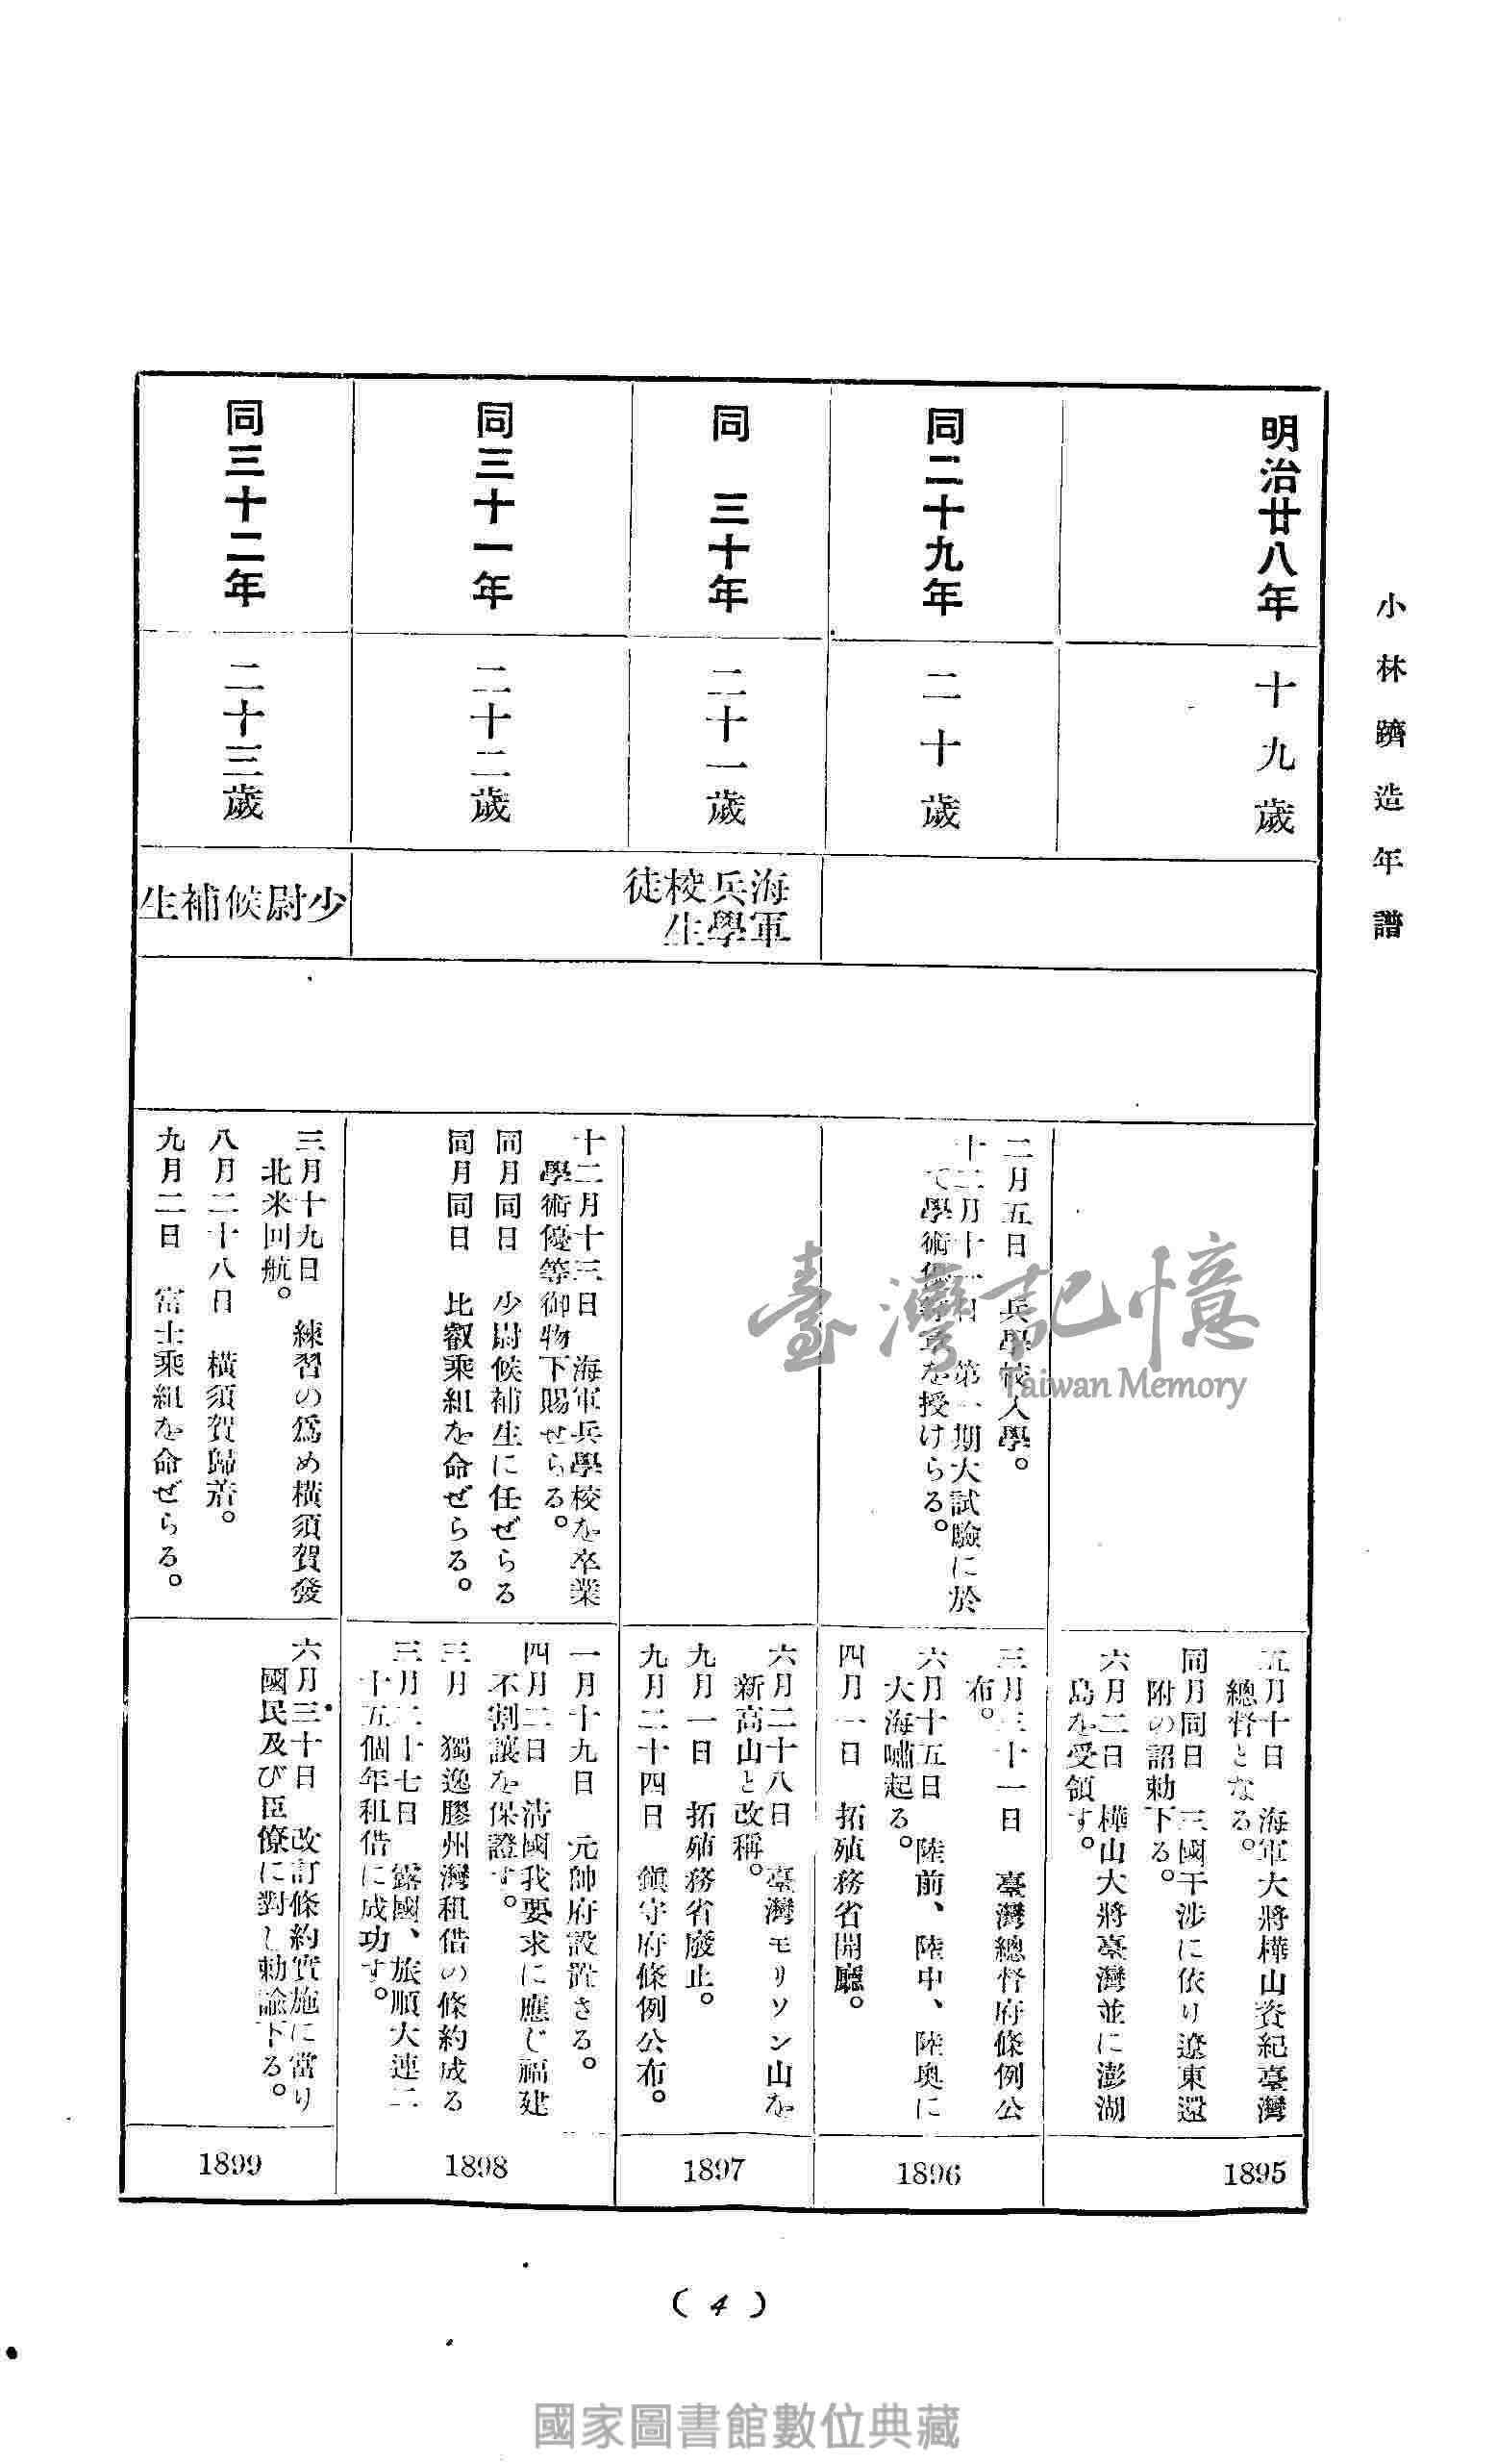 小林躋造年譜
明治廿八年
十九歲
五月十日　海軍大將樺山資紀臺灣
總督となる。
同月同日　三國干涉に依り遼東還
附の詔勅下る。
六月二日　樺山大將臺灣並に澎湖
島を受領す。
1895
同二十九年
二十歲
二月五日　兵學校入學。
十二月十一日　第一期大試驗に於
て學術優等章を授けらる。
三月三十一日　臺灣總督府條例公
布。
六月十五日　陸前、陸中、陸奧に
大海嘯起る。
四月一日　拓殖務省開廳。
1896
同　三十年
二十一歲
海軍
兵學
校生
徒
六月二十八日　臺灣モリソン山を
新高山と改稱。
九月一日　拓殖務省廢止。
九月二十四日　鎭守府條例公布。
1897
同三十一年
二十二歲
十二月十三日　海軍兵學校を卒業
學術優等御物下賜せらる。
同月同日　少尉候補生に任ぜらる
同月同日　比叡乘組を命ぜらる。
一月十九日　元帥府設置さる。
四月二日　淸國我要求に應じ福建
不割讓を保證す。
三月　獨逸膠州灣租借の條約成る
三月二十七日　露國、旅順大連二
十五個年租借に成功す。
1898
同三十二年
二十三歲
少尉候補生
三月十九日　練習の爲め橫須賀發
北米回航。
八月二十八日　橫須賀歸着。
九月二日　富士乘組を命ぜらる。
六月三十日　改訂條約實施に當り
國民及び臣僚に對し勅諭下る。
1899
(4)
臺灣記憶
Taiwan Memory
國家圖書館數位典藏